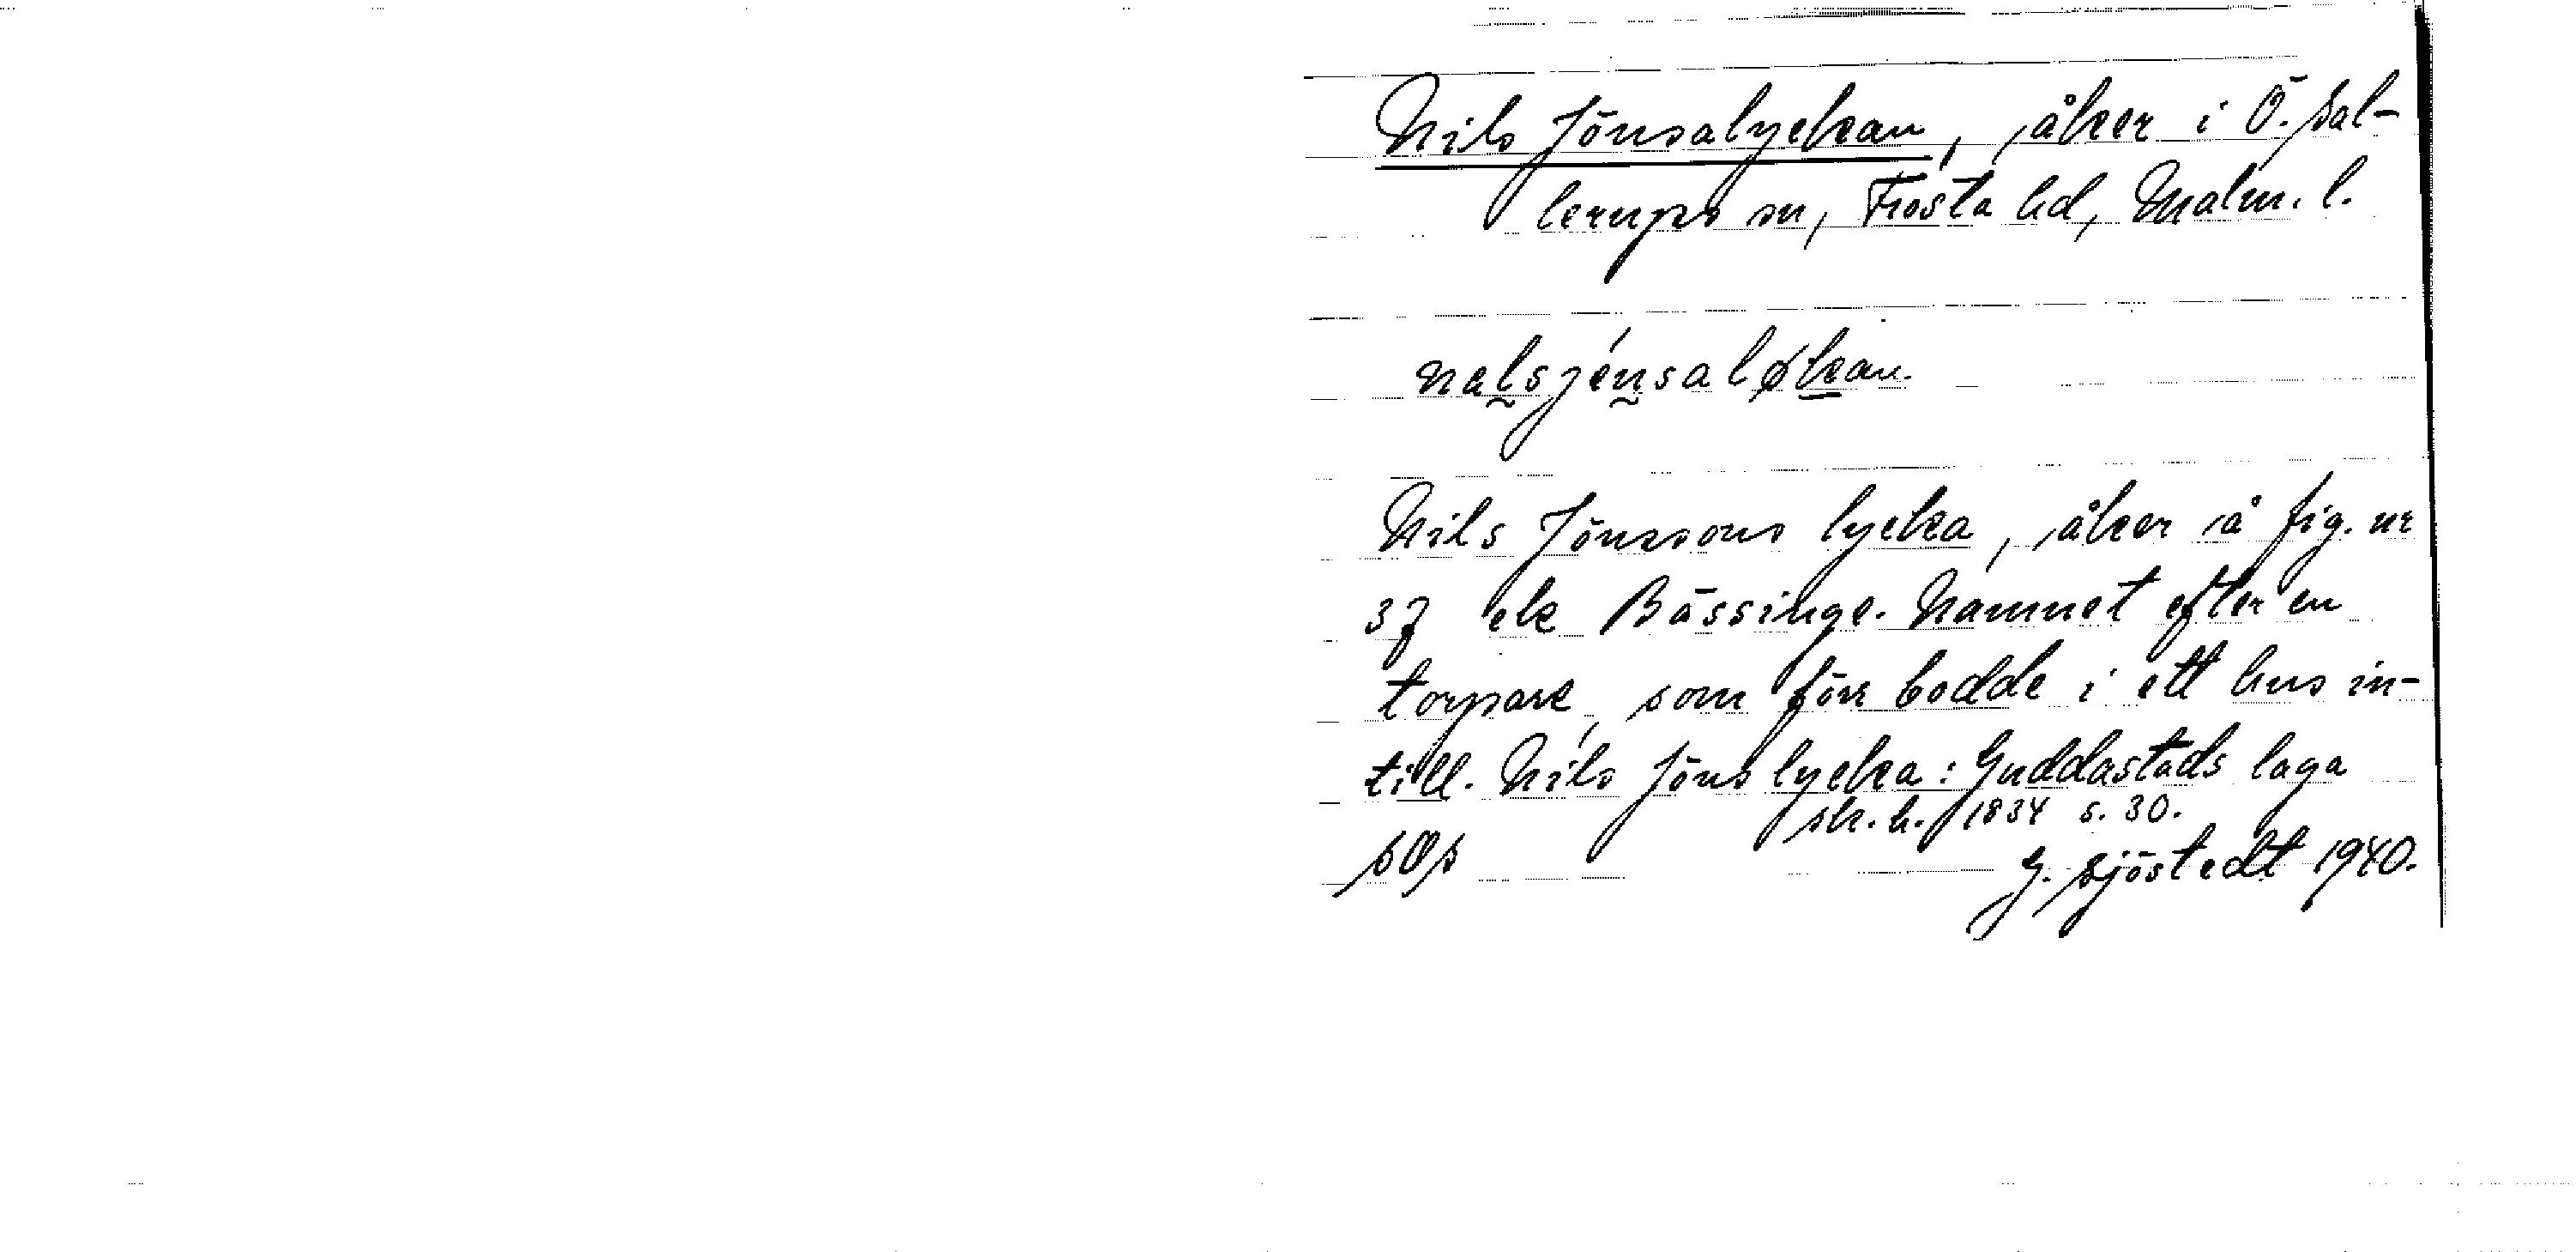 Nils Jönsalyckan, åker i Ö. Sal-
lerups sn, Frosta hd, Malm. l.
nalsjénsaløkan.
Nils Jönssons lycka, åker å fig. nr
37 ek Bässinge. Namnet efter en
torpare, som förr bodde i ett hus in-
till. Nils Jöns lycka: Guddastads laga
sk. h. 1834 s. 30.
SOS
G. Sjöstedt 1940.